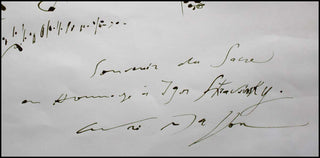 Souvenir du Sacre
en Hommage à Igor Strawinsky.
André Masson